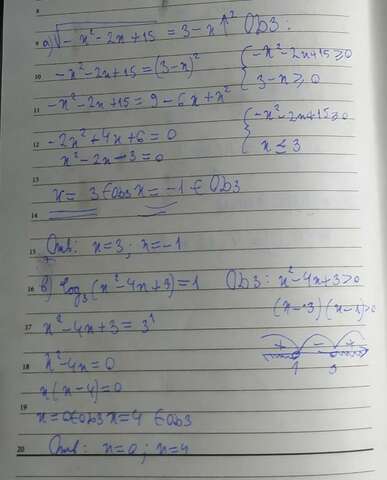 8
9 а) √(-x²-2x+15) = 3-x ↑² ОВЗ:
10 -x²-2x+15=(3-x)² { -x²-2x+15≥0
3-x≥0
11 -x²-2x+15=9-6x+x²
12 -2x²+4x+6=0 { -x²-2x+15≥0
x²-2x-3=0 x≤3
13
x=3∈ОВЗ x=-1∈ОВЗ
14
15 Отв: x=3; x=-1
16 в) log₃(x²-4x+3)=1 ОВЗ: x²-4x+3>0
(x-3)(x-1)>0
17 x²-4x+3=3¹
+ - +
18 x²-4x=0 1 3
x(x-4)=0
19
x=0∈ОВЗ x=4 ∈ОВЗ
20 Отв: x=0; x=4